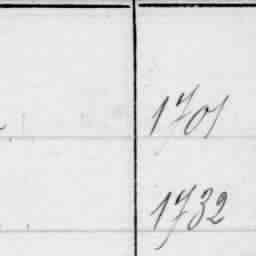 1701
1732